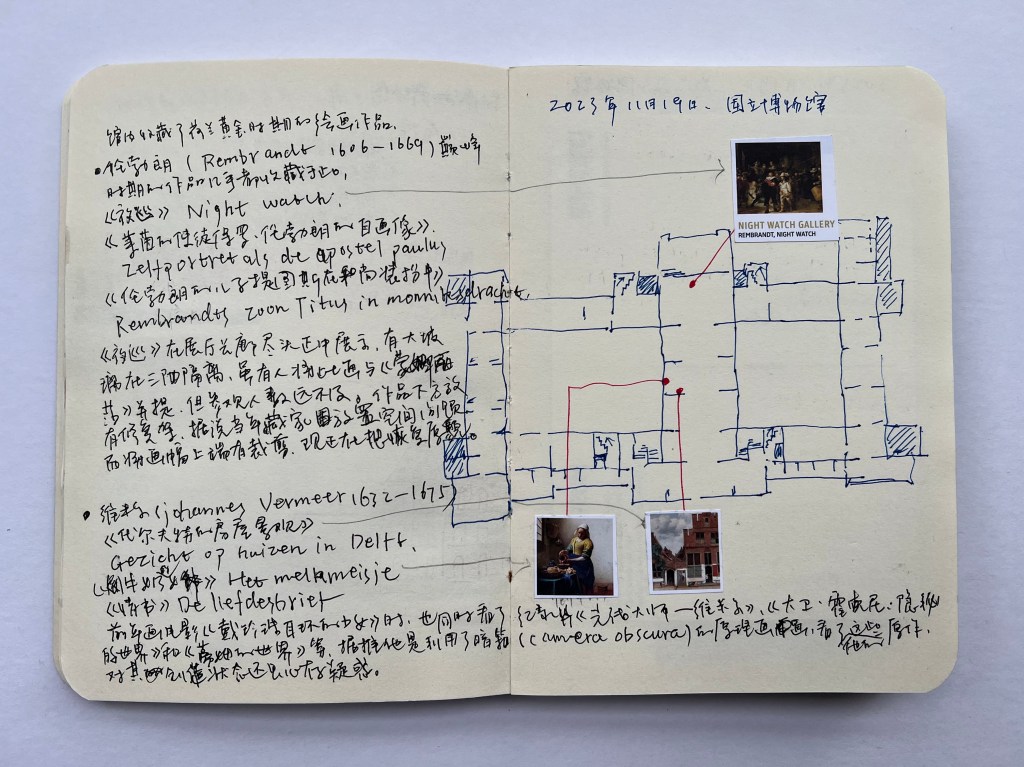 馆内收藏了荷兰黄金时期的绘画作品。
•伦勃朗 (Rembrandt 1606-1669) 巅峰
时期的作品几乎都收藏于此。
《夜巡》 Night watch.
《拿菌的使徒保罗·伦勃朗的自画像》.
Zelfportret als de apostel paulus
《伦勃朗的儿子提图斯在和尚装扮中》
Rembrandts zoon Titus in monniksdracht.
《夜巡》在展厅长廊尽头正中展示，有大玻
璃在三面隔离，虽有人将此画与《蒙娜丽
莎》并提，但参观人数远不及。作品下方放
有修复 据说当年藏家因放置空间的问题
而将画幅上端有裁剪，现正在把恢复原貌。
•维米尔 (johannes Vermeer 1632-1675)
《代尔夫特的房屋景观》
Gezicht op huizen in Delft.
《倒牛奶的女 》 Het melkmeisje
《情书》 De liefdesbrief
前年画电影《戴珍珠耳环的少女》时，也同时看了
的世界》和《 的世界》等，据推他是利用了暗箱
对其 创造状态还是心存疑惑。
2023年11月19日、国立博物馆
NIGHT WATCH GALLERY
REMBRANDT, NIGHT WATCH
纪录片《光线大师—维米尔》、《大卫·霍克尼：隐秘
(camera obscura) 的原理画画，看了这些 原作，
他的